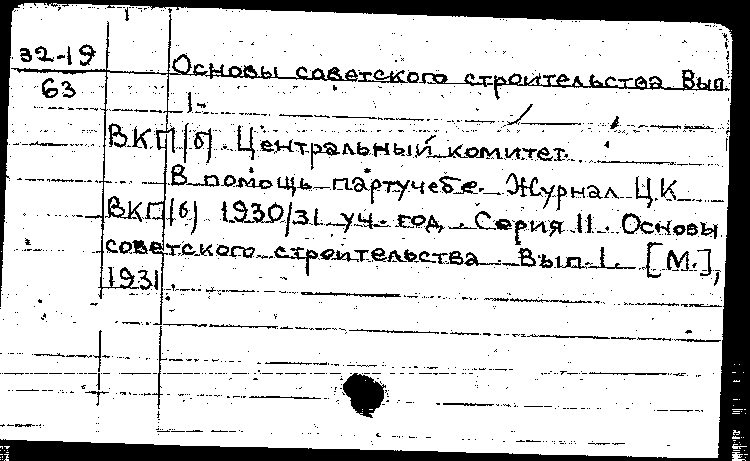 32-19
63
Основы советского строительства Вып.
1-
ВКП(б). Центральный комитет.
В помощь партучебе. Журнал ЦК
ВКП(б) 1930/31 уч. год. Серия II. Основы
советского строительства. Вып. 1. [М.],
1931.